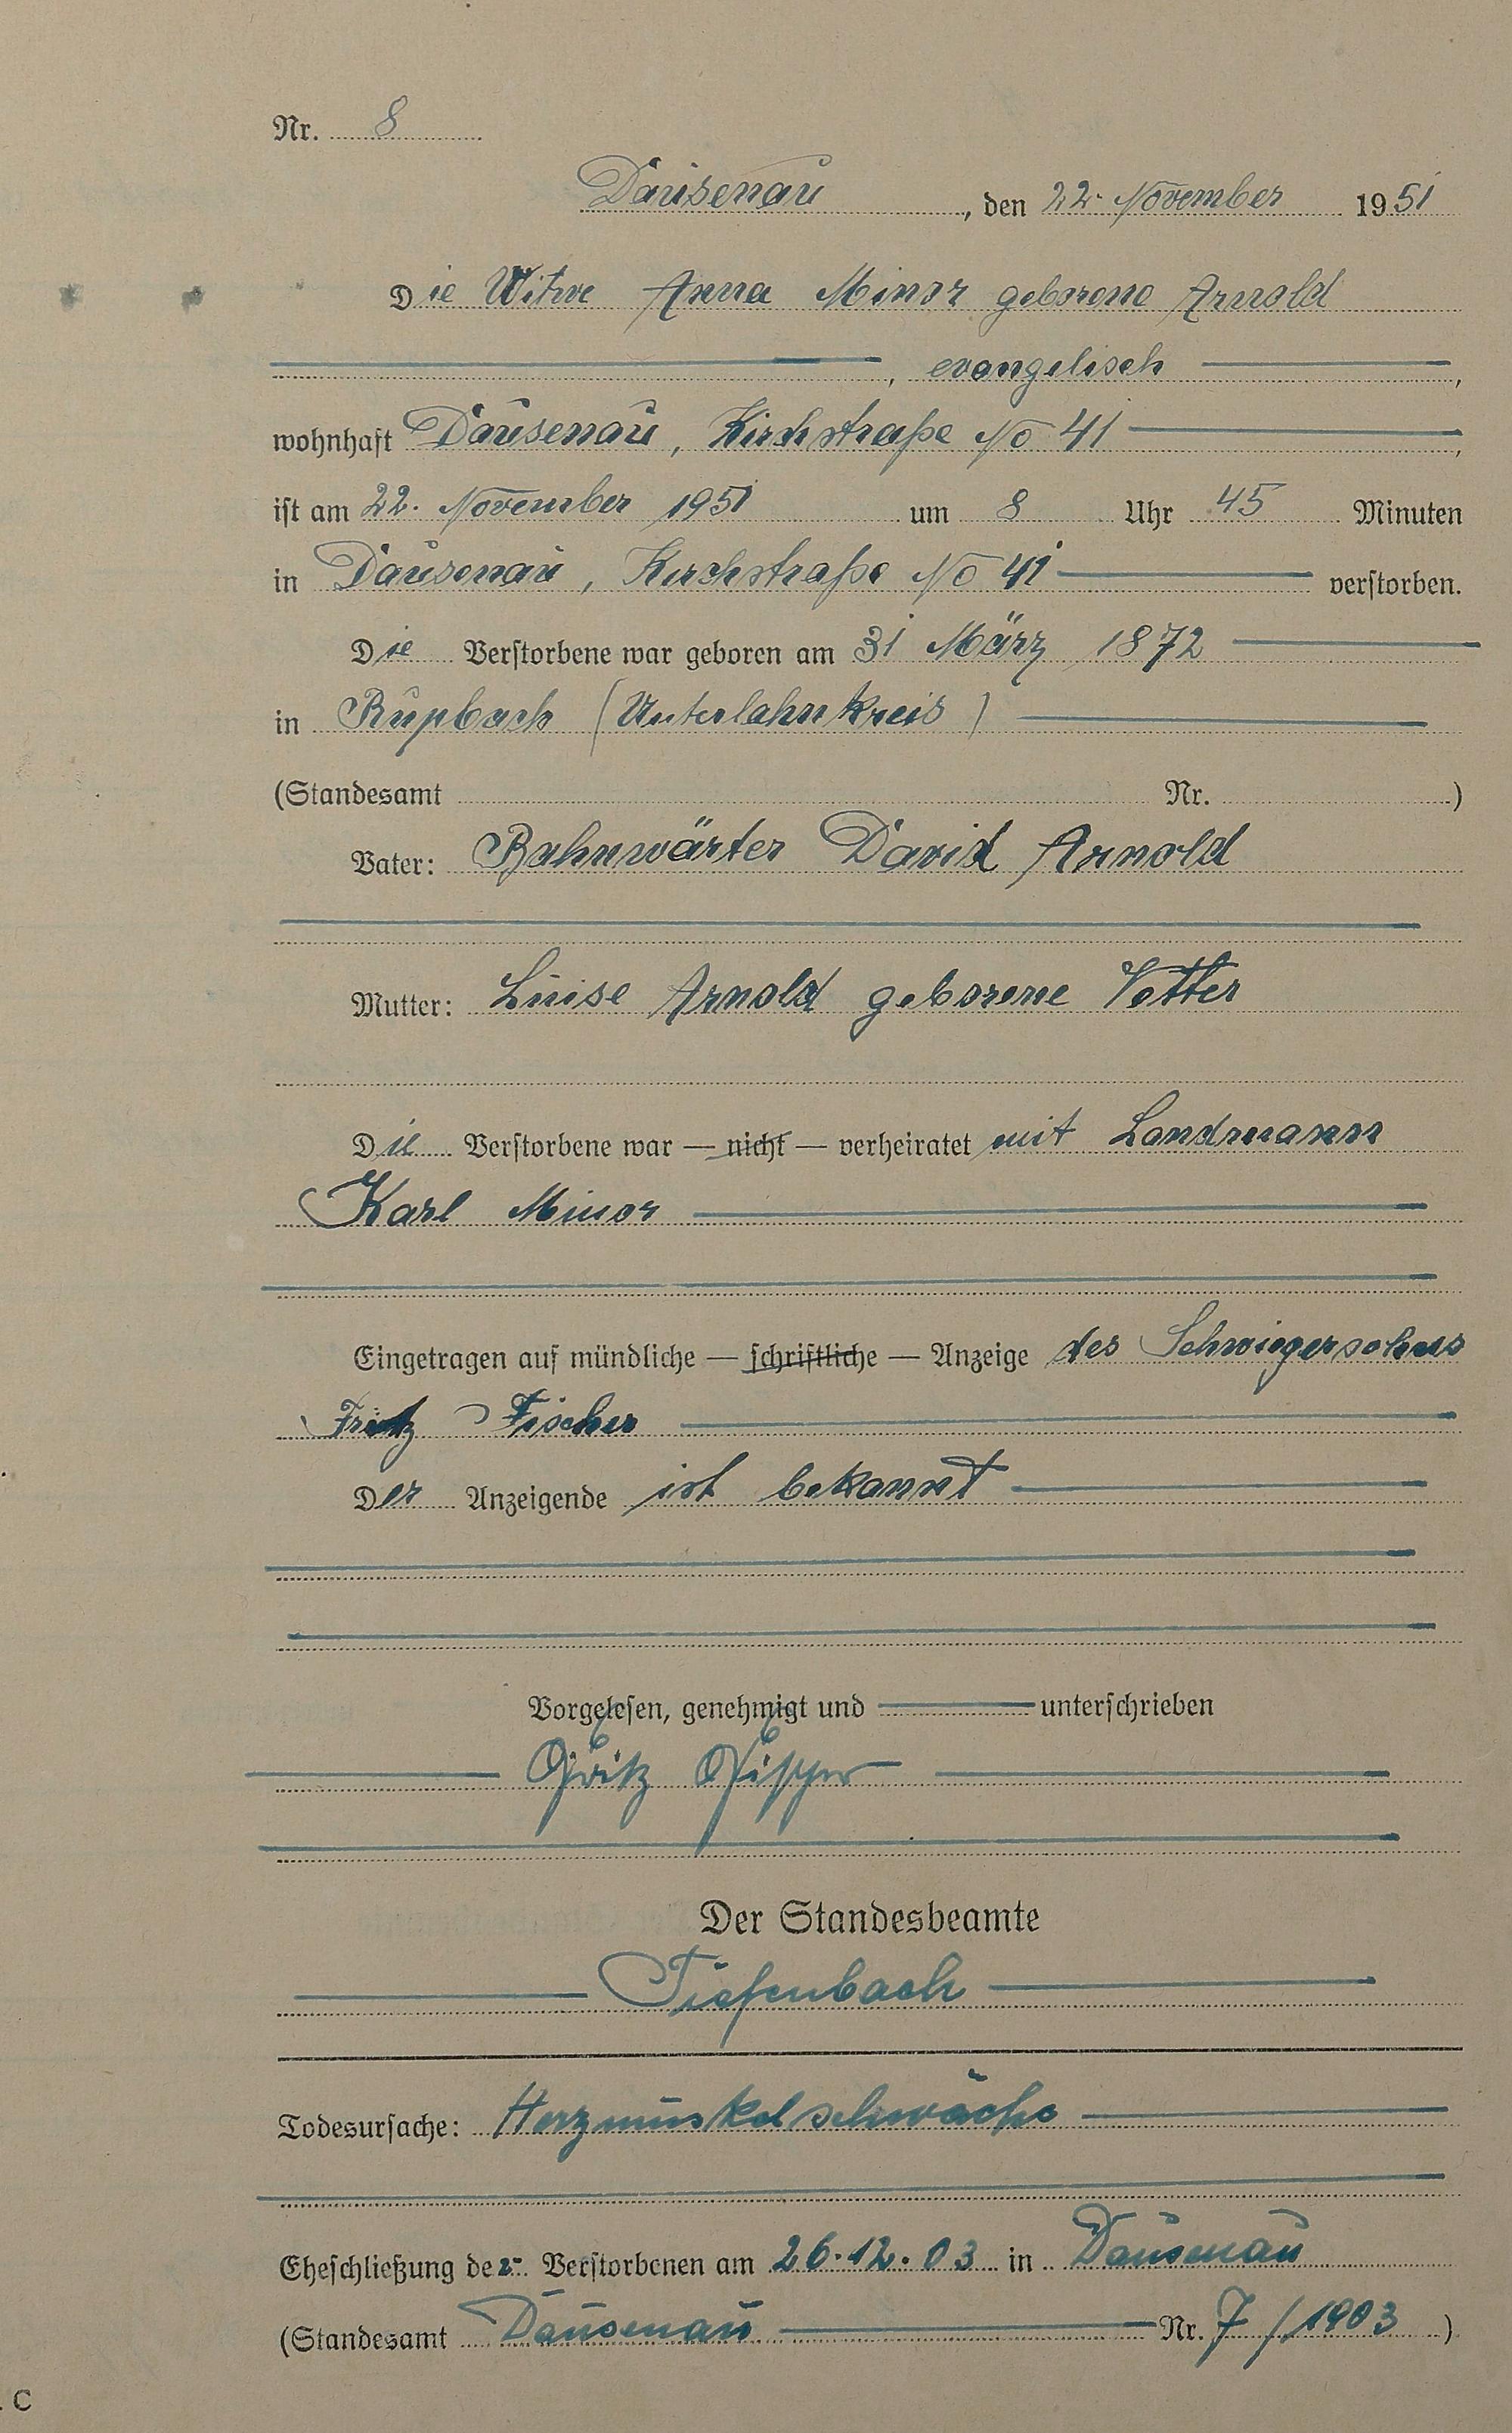 Nr. 8
Dausenau, den 22. November 1951
Die Witwe Anna Minor geborene Arnold
, evangelisch ,
wohnhaft Dausenau, Kirchstraße No 41 ,
ist am 22. November 1951 um 8 Uhr 45 Minuten
in Dausenau, Kirchstraße No 41 verstorben.
Die Verstorbene war geboren am 31 März 1872
in Rupbach (Unterlahnkreis)
(Standesamt Nr. )
Vater: Bahnwärter David Arnold
Mutter: Luise Arnold geborene Vetter
Die Verstorbene war — nicht — verheiratet mit Landmann
Karl Minor
Eingetragen auf mündliche — schriftliche — Anzeige des Schwiegersohnes
Fritz Fischer
Der Anzeigende ist bekannt
Vorgelesen, genehmigt und unterschrieben
Fritz Fischer
Der Standesbeamte
Tiefenbach
Todesursache: Herzmuskelschwäche
Eheschließung der Verstorbenen am 26.12.03 in Dausenau
(Standesamt Dausenau Nr. 7/1903)
. C